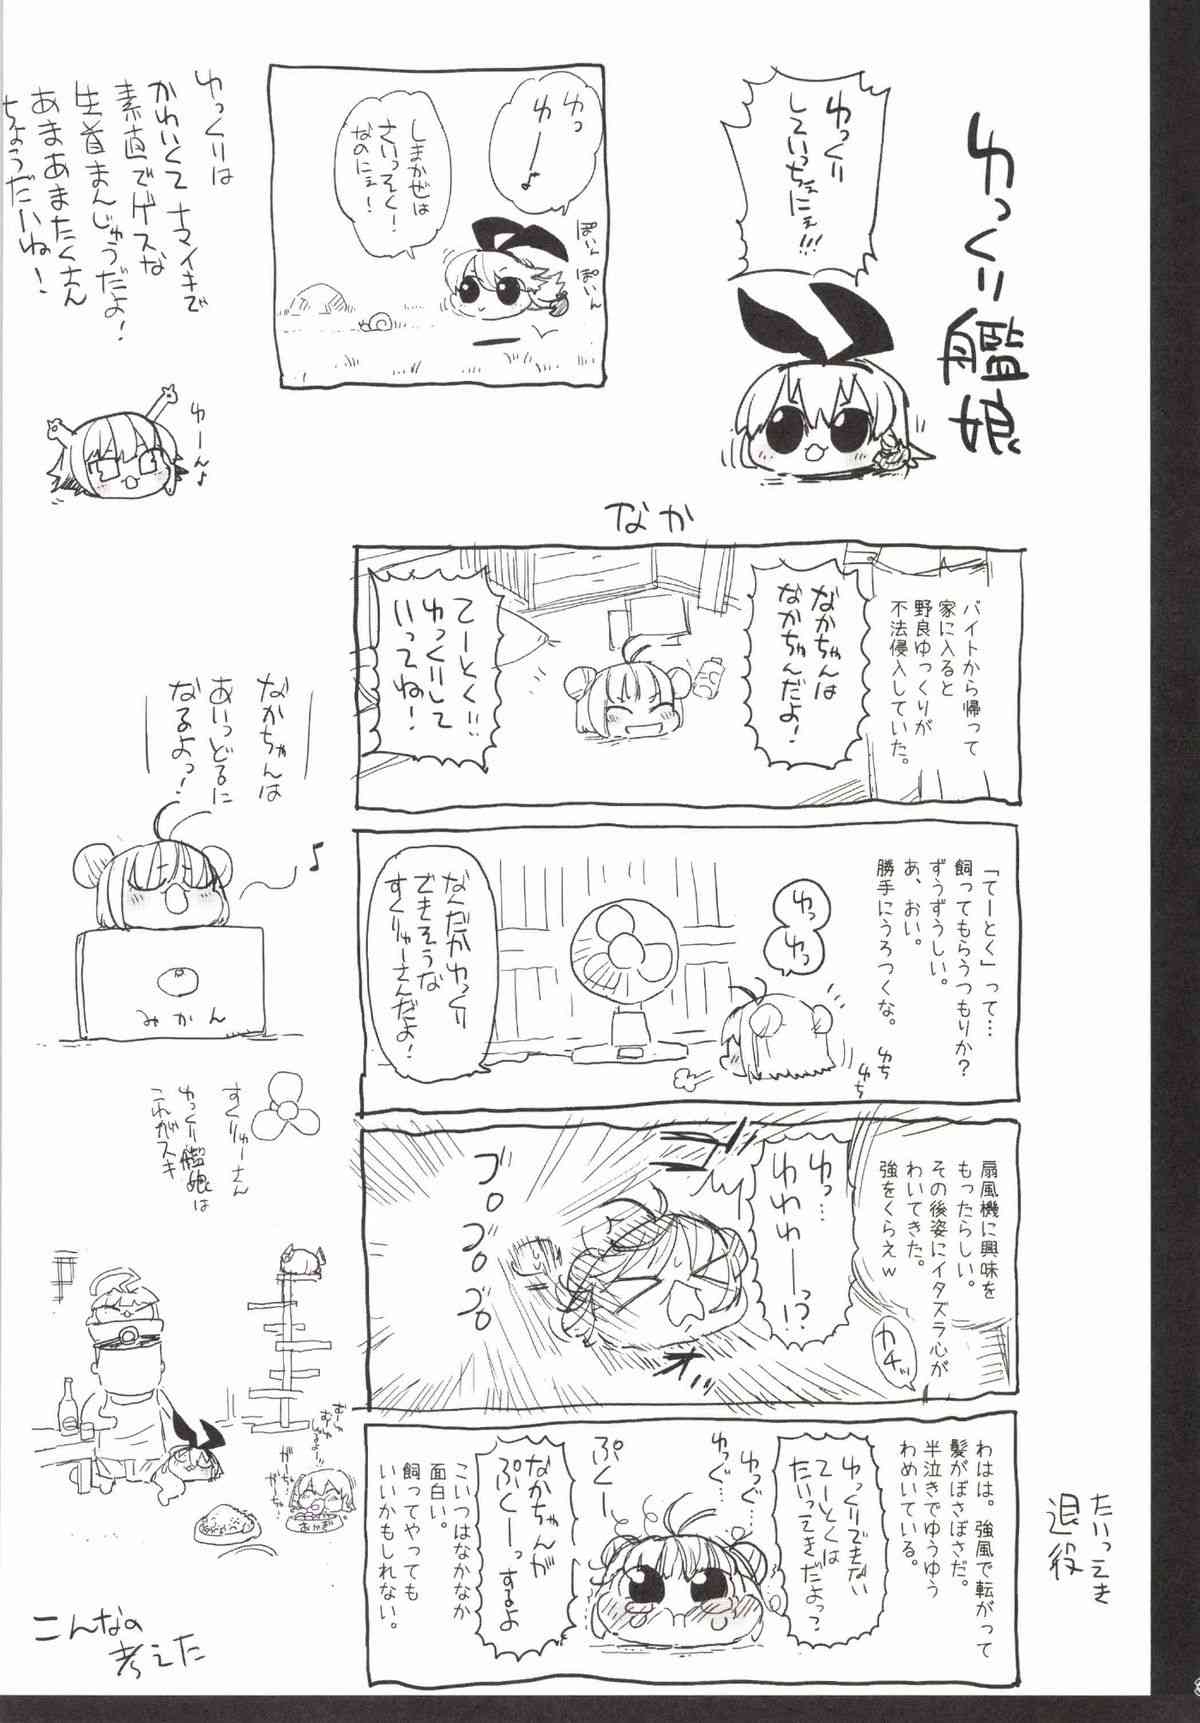 ゆっくり艦娘
ゆっくり
していっちぇにぇ!!!
ゆっ
ゆー♪
しまかぜは
さいっそく!
なのにぇ!
ぽいん
ぽいん
ゆっくりは
かわいくてナマイキで
素直でゲスな
生首まんじゅうだよ!
あまあまたくさん
ちょうだいね!
ゆーん♪
なか
バイトから帰って
家に入ると
野良ゆっくりが
不法侵入していた。
なかちゃんは
なかちゃんだよ!
てーとく!!
ゆっくりして
いってね!
「てーとく」って…
飼ってもらうつもりか?
ずうずうしい。
あ、おい。
勝手にうろつくな。
ゆち
ゆち
ゆっ
ゆっ
なんだかゆっくり
できそうな
すくりゅーさんだよ!
扇風機に興味を
もったらしい。
その後姿にイタズラ心が
わいてきた。
強をくらえw
カチッ
ゆっ…
ゆわわーっ!?
ブロロロロ
わはは。強風で転がって
髪がぼさぼさだ。
半泣きでゆうゆう
わめいている。
ゆっくりできない
てーとくは
たいってきだよっ?
ゆっぐ…
ゆっぐ…
ぷくー
なかちゃんが
ぷくーっするよ
こいつはなかなか
面白い。
飼ってやっても
いいかもしれない。
たいってき
退役
なかちゃんは
あいっどるに
なるよっ!
♪
みかん
すくりゅーさん
ゆっくり艦娘は
これがスキ
むーしゃ
むーしゃ
するよ!!
がーちゅ
がーちゅ
あかぎ
こんなの
考えた